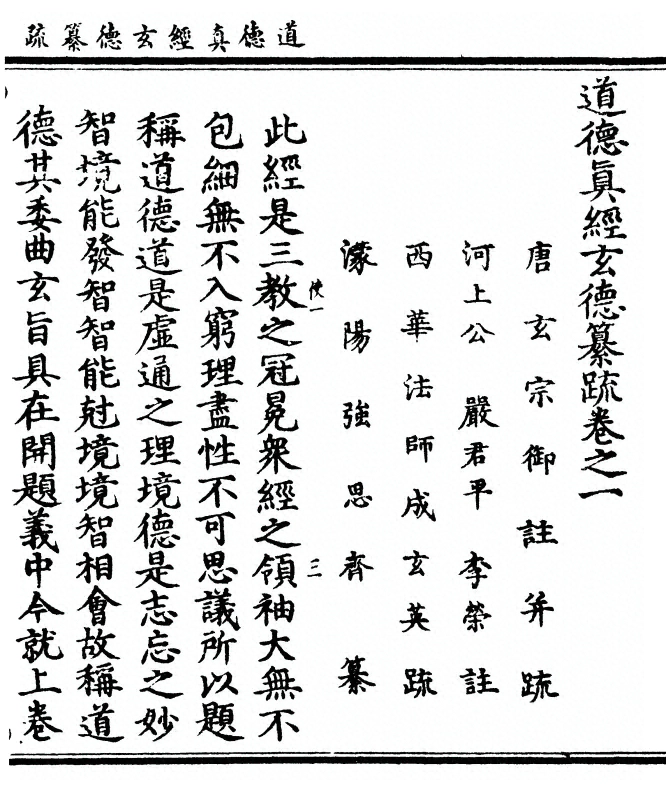 道德真經玄德纂疏
道德眞經玄德纂疏卷之一
唐玄宗御註并疏
河上公 嚴君平 李榮註
西華法師成玄英疏
濛陽強思齊纂
使一 三
此經是三教之冠冕衆經之領袖大無不
包細無不入窮理盡性不可思議所以題
稱道德道是虛通之理境德是志忘之妙
智境能發智智能尅境境智相會故稱道
德其委曲玄旨具在開題義中今就上卷